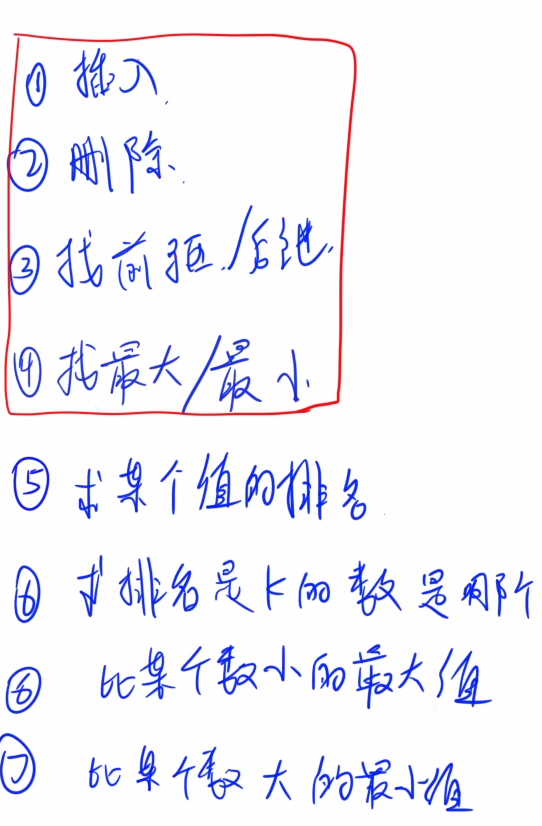 ① 插入.
② 删除.
③ 找前驱/后继.
④ 找最大/最小.
⑤ 求某个值的排名
⑥ 求排名是k的数是哪个
⑥ 比某个数小的最大值
⑦ 比某个数大的最小值